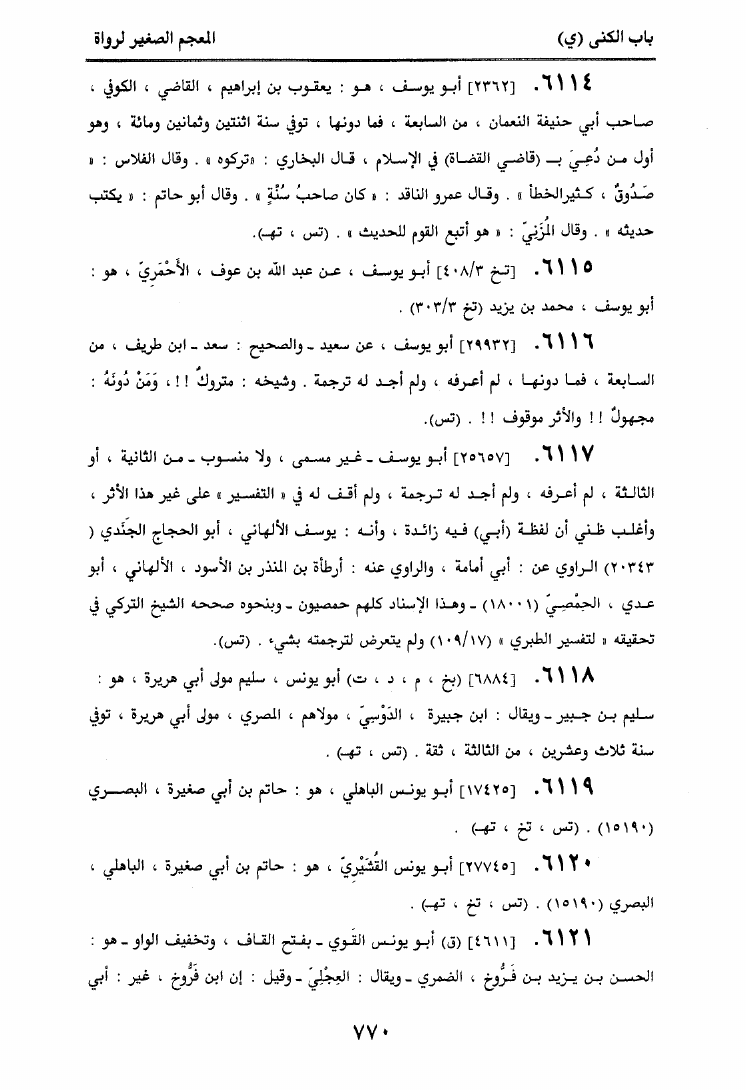 باب الكنى (ي)
المعجم الصغير لرواة
٦١١٤. [٢٣٦٢] أبو يوسف ، هو : يعقوب بن إبراهيم ، القاضي ، الكوفي ،
صاحب أبي حنيفة النعمان ، من السابعة ، فما دونها ، توفي سنة اثنتين وثمانين ومائة ، وهو
أول من دُعِيَ بـ (قاضي القضاة) في الإسلام ، قال البخاري : «تركوه» . وقال الفلاس : «
صَدُوقٌ ، كثيرالخطأ » . وقال عمرو الناقد : « كان صاحبُ سُنَّةٍ » . وقال أبو حاتم : « يكتب
حديثه » . وقال المُزَنِيّ : « هو أتبع القوم للحديث » . (تس ، تهـ).
٦١١٥. [تخ ٤٠٨/٣] أبو يوسف ، عن عبد الله بن عوف ، الأَحْمَرِيّ ، هو :
أبو يوسف ، محمد بن يزيد (تخ ٣٠٣/٣) .
٦١١٦. [٢٩٩٣٢] أبو يوسف ، عن سعيد ـ والصحيح : سعد ـ ابن طريف ، من
السابعة ، فما دونها ، لم أعرفه ، ولم أجد له ترجمة . وشيخه : متروكٌ !! ، وَمَنْ دُونَهُ :
مجهولٌ !! والأثر موقوف !! . (تس).
٦١١٧. [٢٥٦٥٧] أبو يوسف ـ غير مسمى ، ولا منسوب ـ من الثانية ، أو
الثالثة ، لم أعرفه ، ولم أجد له ترجمة ، ولم أقف له في « التفسير » على غير هذا الأثر ،
وأغلب ظني أن لفظة (أبي) فيه زائدة ، وأنه : يوسف الألهاني ، أبو الحجاج الجَنَدي (
٢٠٣٤٣) الراوي عن : أبي أمامة ، والراوي عنه : أرطأة بن المنذر بن الأسود ، الألهاني ، أبو
عدي ، الحِمْصِيّ (١٨٠٠١) ـ وهذا الإسناد كلهم حمصيون ـ وبنحوه صححه الشيخ التركي في
تحقيقه « لتفسير الطبري » (١٠٩/١٧) ولم يتعرض لترجمته بشيء . (تس).
٦١١٨. [٦٨٨٤] (بخ ، م ، د ، ت) أبو يونس ، سليم مولى أبي هريرة ، هو :
سليم بن جبير ـ ويقال : ابن جبيرة ، الدَوْسِيّ ، مولاهم ، المصري ، مولى أبي هريرة ، توفي
سنة ثلاث وعشرين ، من الثالثة ، ثقة . (تس ، تهـ) .
٦١١٩. [١٧٤٢٥] أبو يونس الباهلي ، هو : حاتم بن أبي صغيرة ، البصري
(١٥١٩٠) . (تس ، تخ ، تهـ) .
٦١٢٠. [٢٧٧٤٥] أبو يونس القُشَيْرِيّ ، هو : حاتم بن أبي صغيرة ، الباهلي ،
البصري (١٥١٩٠) . (تس ، تخ ، تهـ) .
٦١٢١. [٤٦١١] (ق) أبو يونس القَوي ـ بفتح القاف ، وتخفيف الواو ـ هو :
الحسن بن يزيد بن فَرُّوخ ، الضمري ـ ويقال : العِجْلِيّ ـ وقيل : إن ابن فَرُّوخ ، غير : أبي
٧٧٠